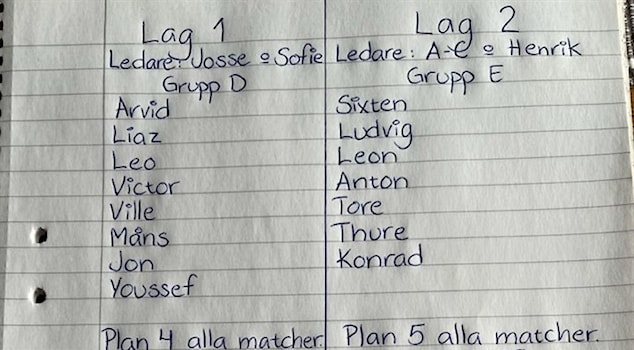 Lag 1
Ledare: Josse o Sofie
Grupp D
Arvid
Liaz
Leo
Victor
Ville
Måns
Jon
Youssef
Plan 4 alla matcher.
Lag 2
Ledare: A-C o Henrik
Grupp E
Sixten
Ludvig
Leon
Anton
Tore
Thure
Konrad
Plan 5 alla matcher.